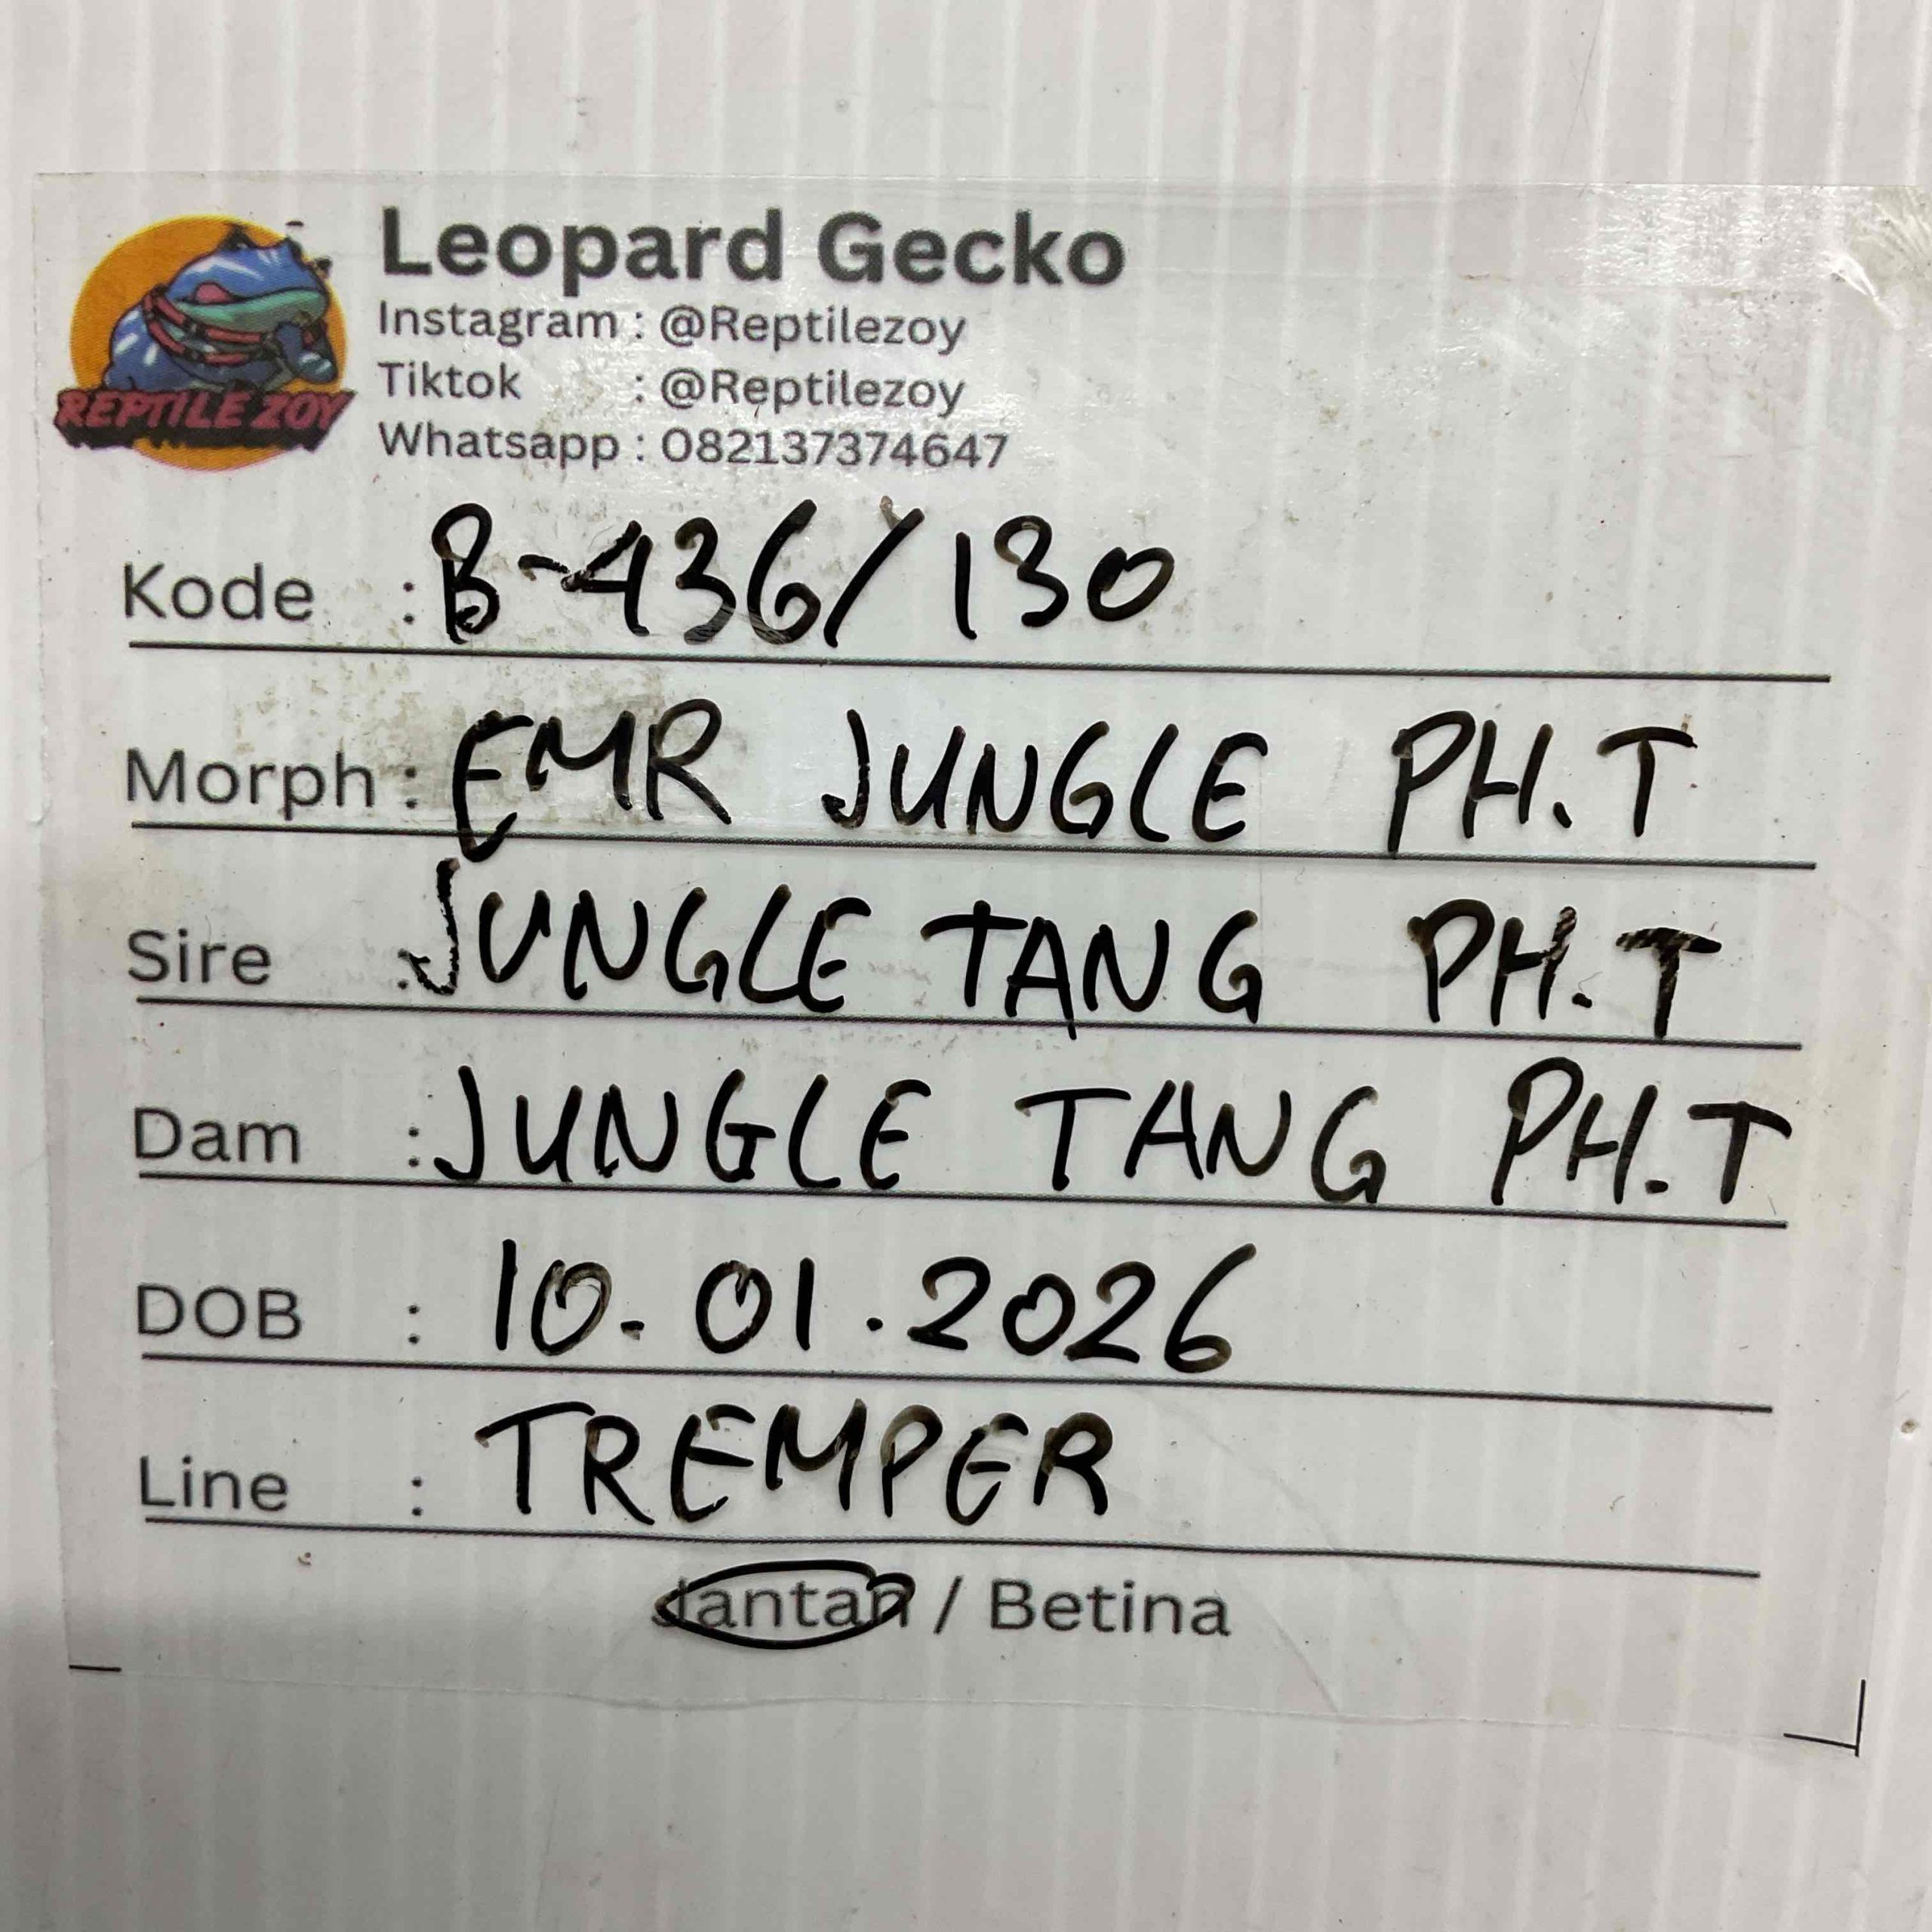 REPTILE ZOY
Leopard Gecko
Instagram : @Reptilezoy
Tiktok : @Reptilezoy
Whatsapp : 082137374647
Kode : B-436/130
Morph : EMR JUNGLE PH.T
Sire : JUNGLE TANG PH.T
Dam : JUNGLE TANG PH.T
DOB : 10.01.2026
Line : TREMPER
Jantan / Betina